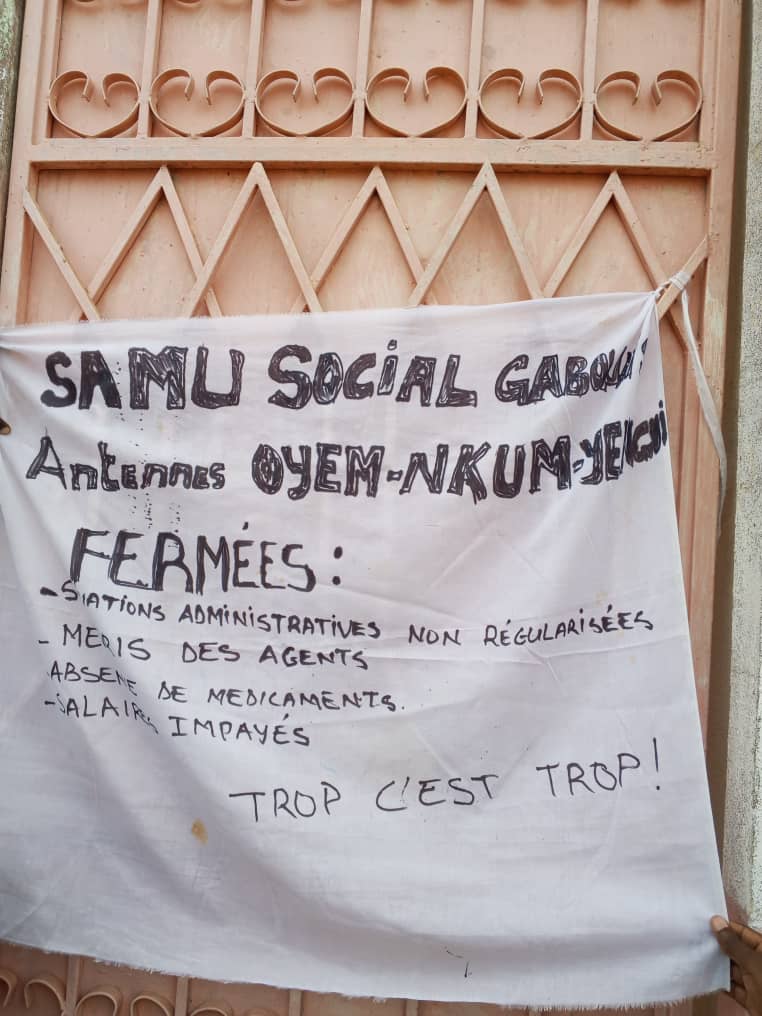 SAMU SOCIAL GABONAIS
Antennes OYEM-NKUM-YENGUI
FERMÉES :
- SITATIONS ADMINISTRATIVES NON RÉGULARISÉES
- MEPRIS DES AGENTS
ABSENE DE MEDICAMENTS.
- SALAIRES IMPAYÉS
TROP C'EST TROP !